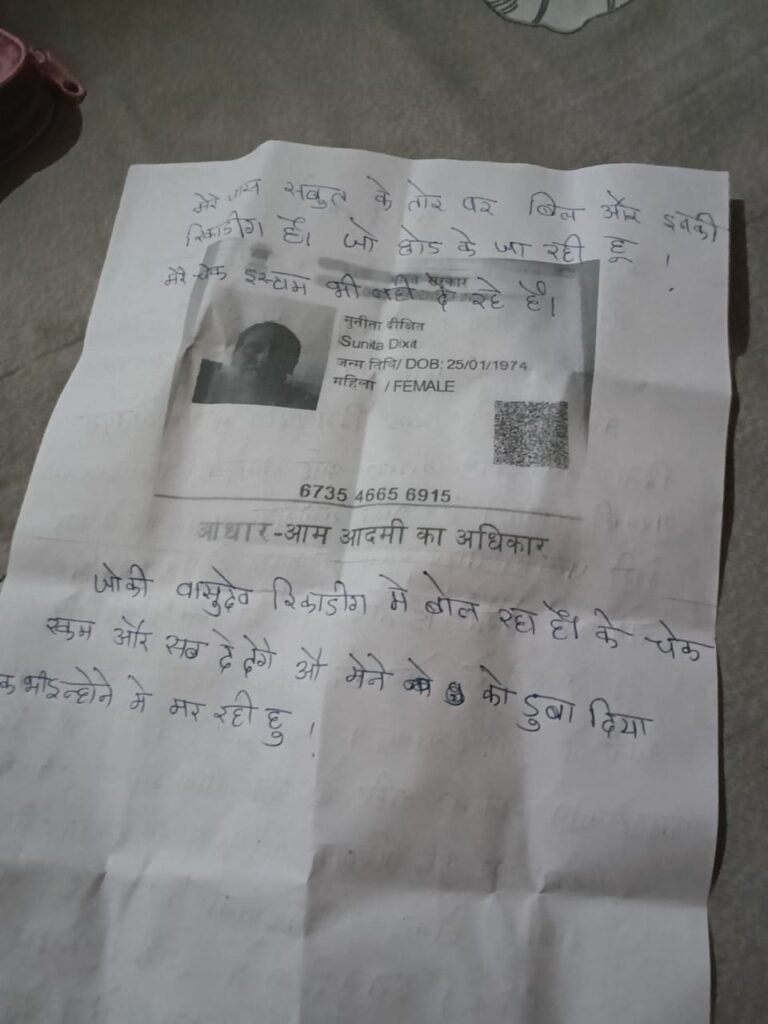 मेरे पास सबुत के तोर पर बिल और इनकी
रिकार्डीग है। जो छोड के जा रही हू !
मेरे चेक इस्टाम भी नही दे रहे है।
सुनीता दीक्षित
Sunita Dixit
जन्म तिथि/ DOB: 25/01/1974
महिला / FEMALE
6735 4665 6915
आधार-आम आदमी का अधिकार
जोकी वासुदेव रिकार्डीग मे बोल रहा है। के चेक
और सब दे देगे औ मेने को डुबा दिया
इन्होने मे मर रही हु !